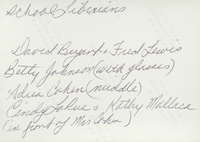 School Librarians
David Bryant & Fred Lewis
Betty Johnson (with glasses)
Adria Cohen (middle)
Cindy & Kathy
(in front of Mrs Cohn)